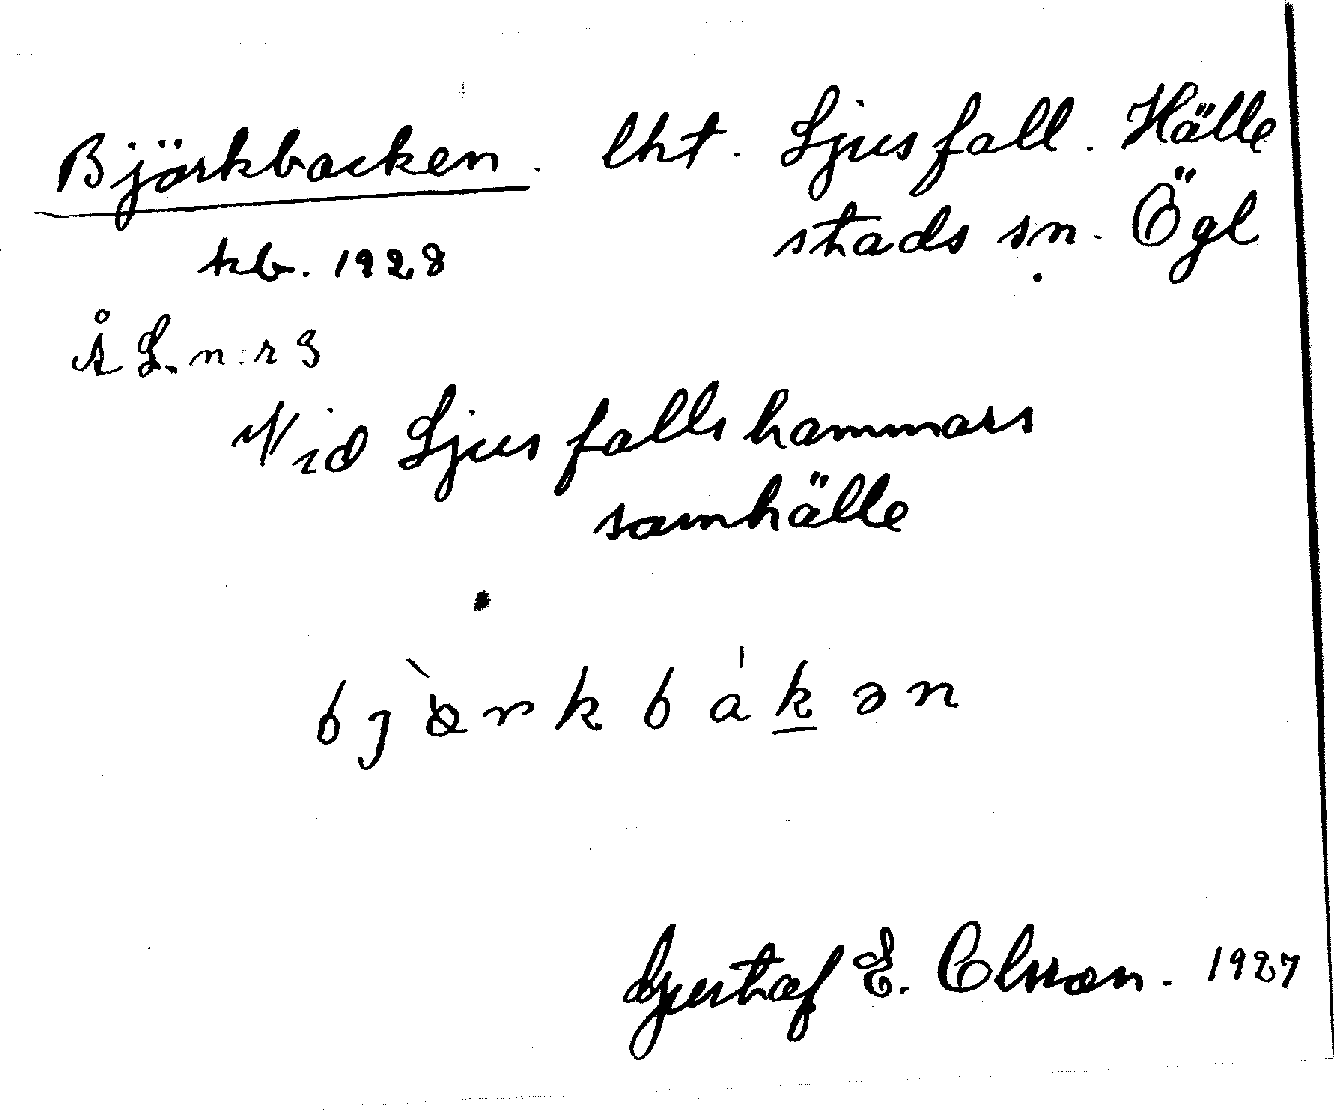 Björkbacken. lht. Ljusfall. Hälle
stads sn. Ögl
kb. 1928
ÅL. n:r 3
Vid Ljusfallshammars
samhälle
bjœ̀rkbák̲ən
Gustaf E. Olsson. 1927